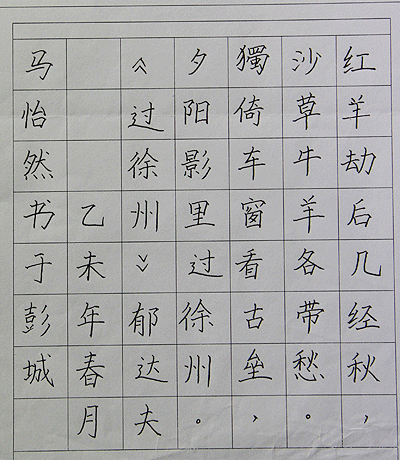 红羊劫后几经秋，
沙草牛羊各带愁。
獨倚车窗看古垒，
夕阳影里过徐州。
《过徐州》郁达夫
乙未年春月
马怡然书于彭城